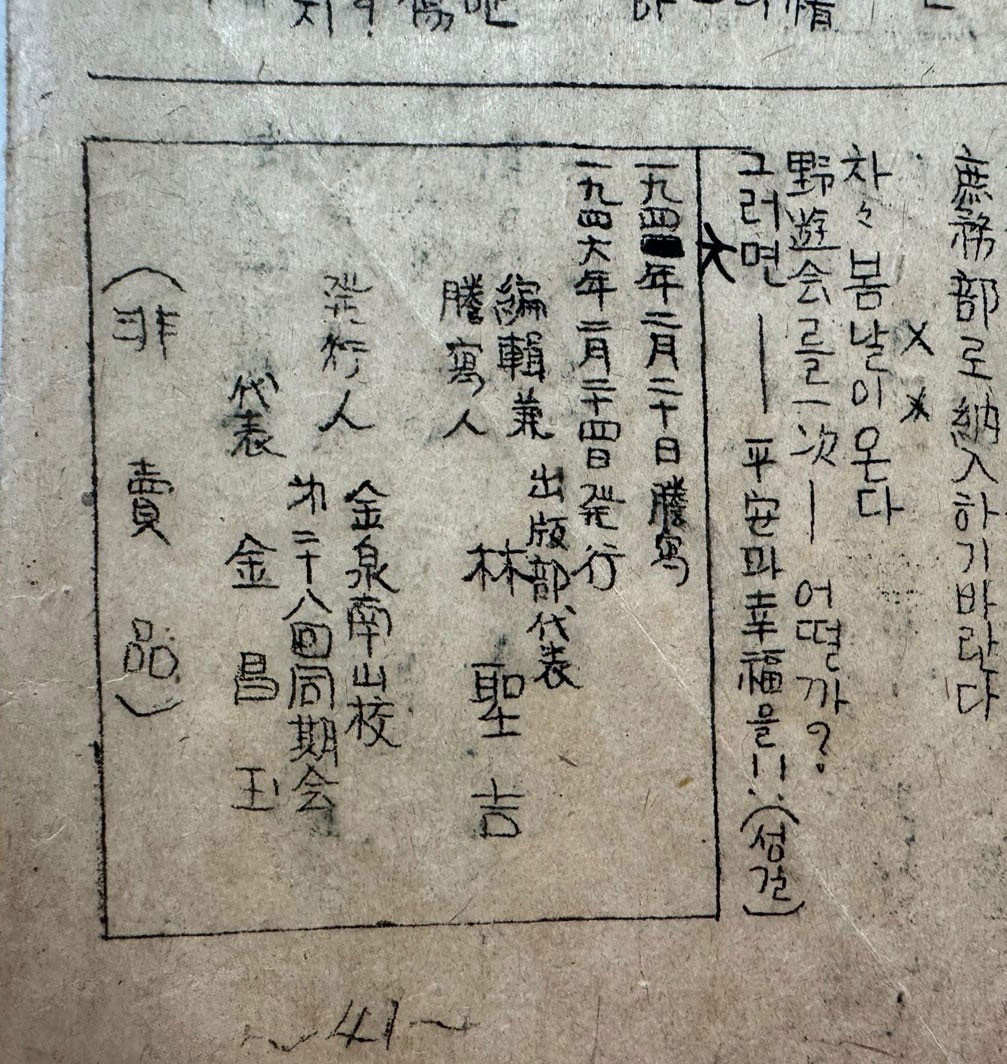 庶務部로 納入하기바란다
× ×
차々 봄날이온다
野遊会를 一次— 어떨까?
그러면 —— 平安과 幸福을!! (성길)
一九四六年二月二十日 謄寫
一九四六年二月二十四日 発行
編輯兼 出版部代表
謄寫人 林聖吉
発行人 金泉南山校
第二十八回同期会
代表 金昌玉
(非賣品)
~41~